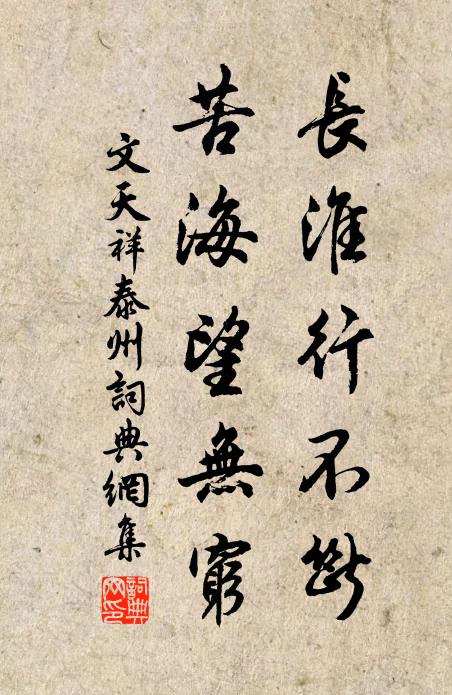 長淮行不斷
苦海望無窮
文天祥泰州詞典網集
詞典網印